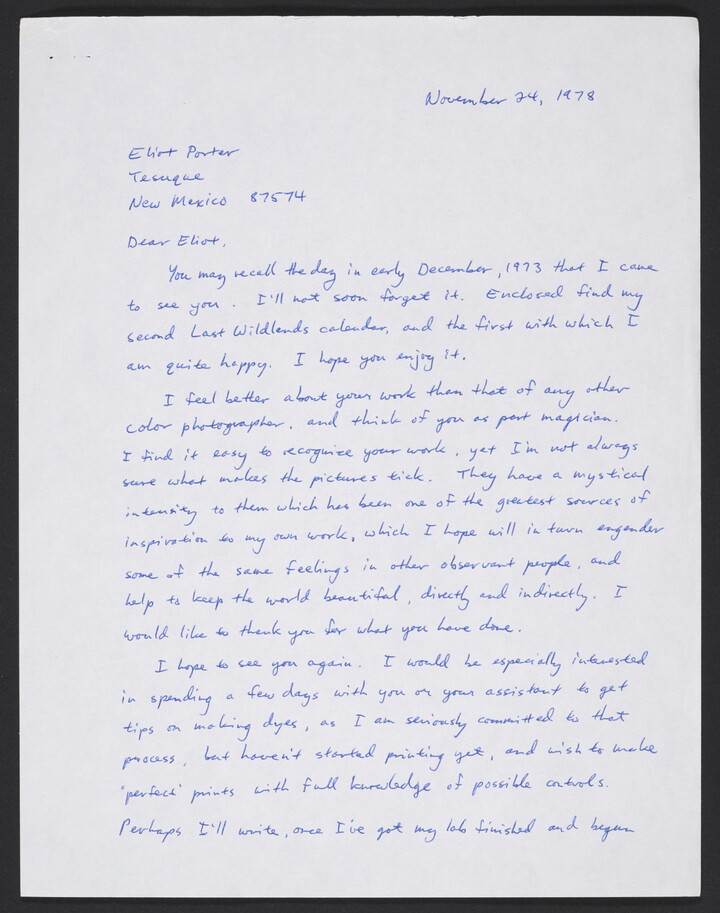 November 24, 1978
Eliot Porter
Tesuque
New Mexico 87574
Dear Eliot,
You may recall the day in early December, 1973 that I came
to see you. I'll not soon forget it. Enclosed find my
second Last Wildlands calendar, and the first with which I
am quite happy. I hope you enjoy it.
I feel better about your work than that of any other
color photographer, and think of you as part magician.
I find it easy to recognize your work, yet I'm not always
sure what makes the pictures tick. They have a mystical
intensity to them which has been one of the greatest sources of
inspiration to my own work, which I hope will in turn engender
some of the same feelings in other observant people, and
help to keep the world beautiful, directly and indirectly. I
would like to thank you for what you have done.
I hope to see you again. I would be especially interested
in spending a few days with you or your assistant to get
tips on making dyes, as I am seriously committed to that
process, but haven't started printing yet, and wish to make
"perfect" prints with full knowledge of possible controls.
Perhaps I'll write, once I've got my lab finished and begun